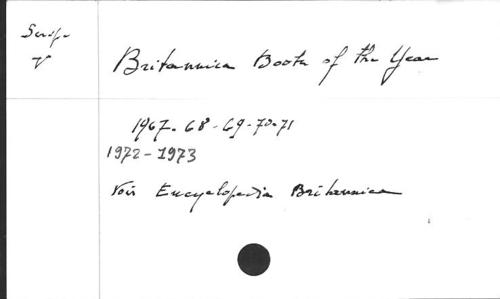 V
Britannica Book of the Year
1967-68-69-70-71
1972-1973
Voir Encyclopedia Britannica